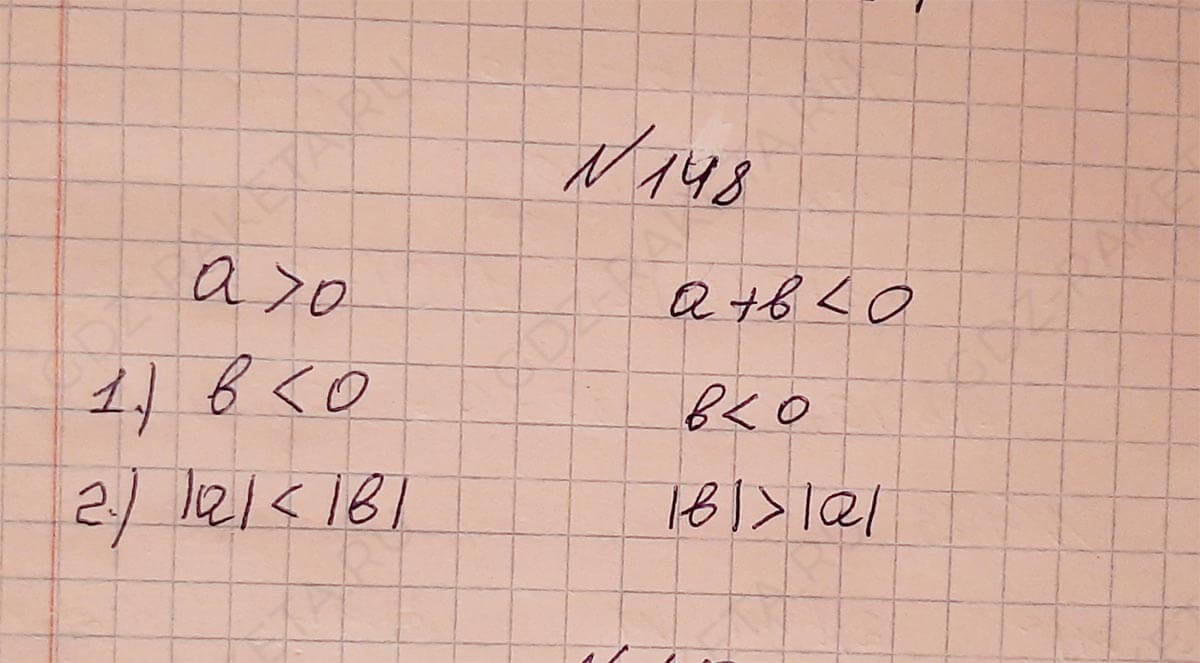 № 148
a > 0 a + в < 0
1.) в < 0 в < 0
2.) |a| < |в| |в| > |a|
GDZ-RAKETA.RU